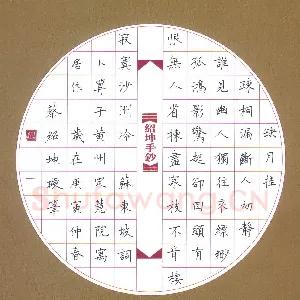 缺月挂
疎桐漏斷人初靜
誰見幽人獨往來縹緲
孤鴻影驚起卻回頭有
恨無人省揀盡寒枝不肯棲
紹坤手鈔
寂寞沙洲冷 蘇東坡詞
卜算子 黃州定慧院寓
居作 歲在庚寅仲春
蔡紹坤硬筆